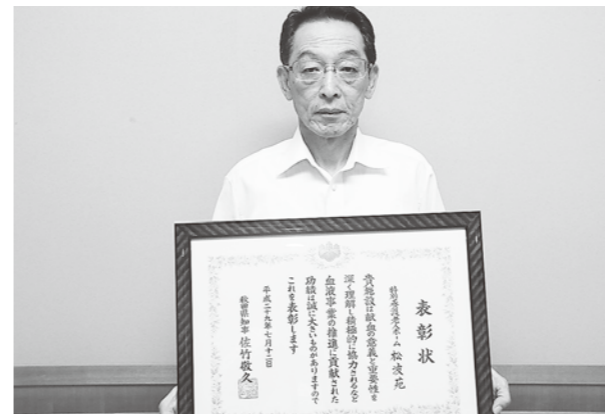 表彰状
特別養護老人ホーム 松波苑
貴施設は献血の意義と重要性を
深く理解し積極的に協力されるなど
血液事業の推進に貢献された
功績は誠に大きいものがありますので
これを表彰します
平成二十九年七月十二日
秋田県知事 佐竹敬久